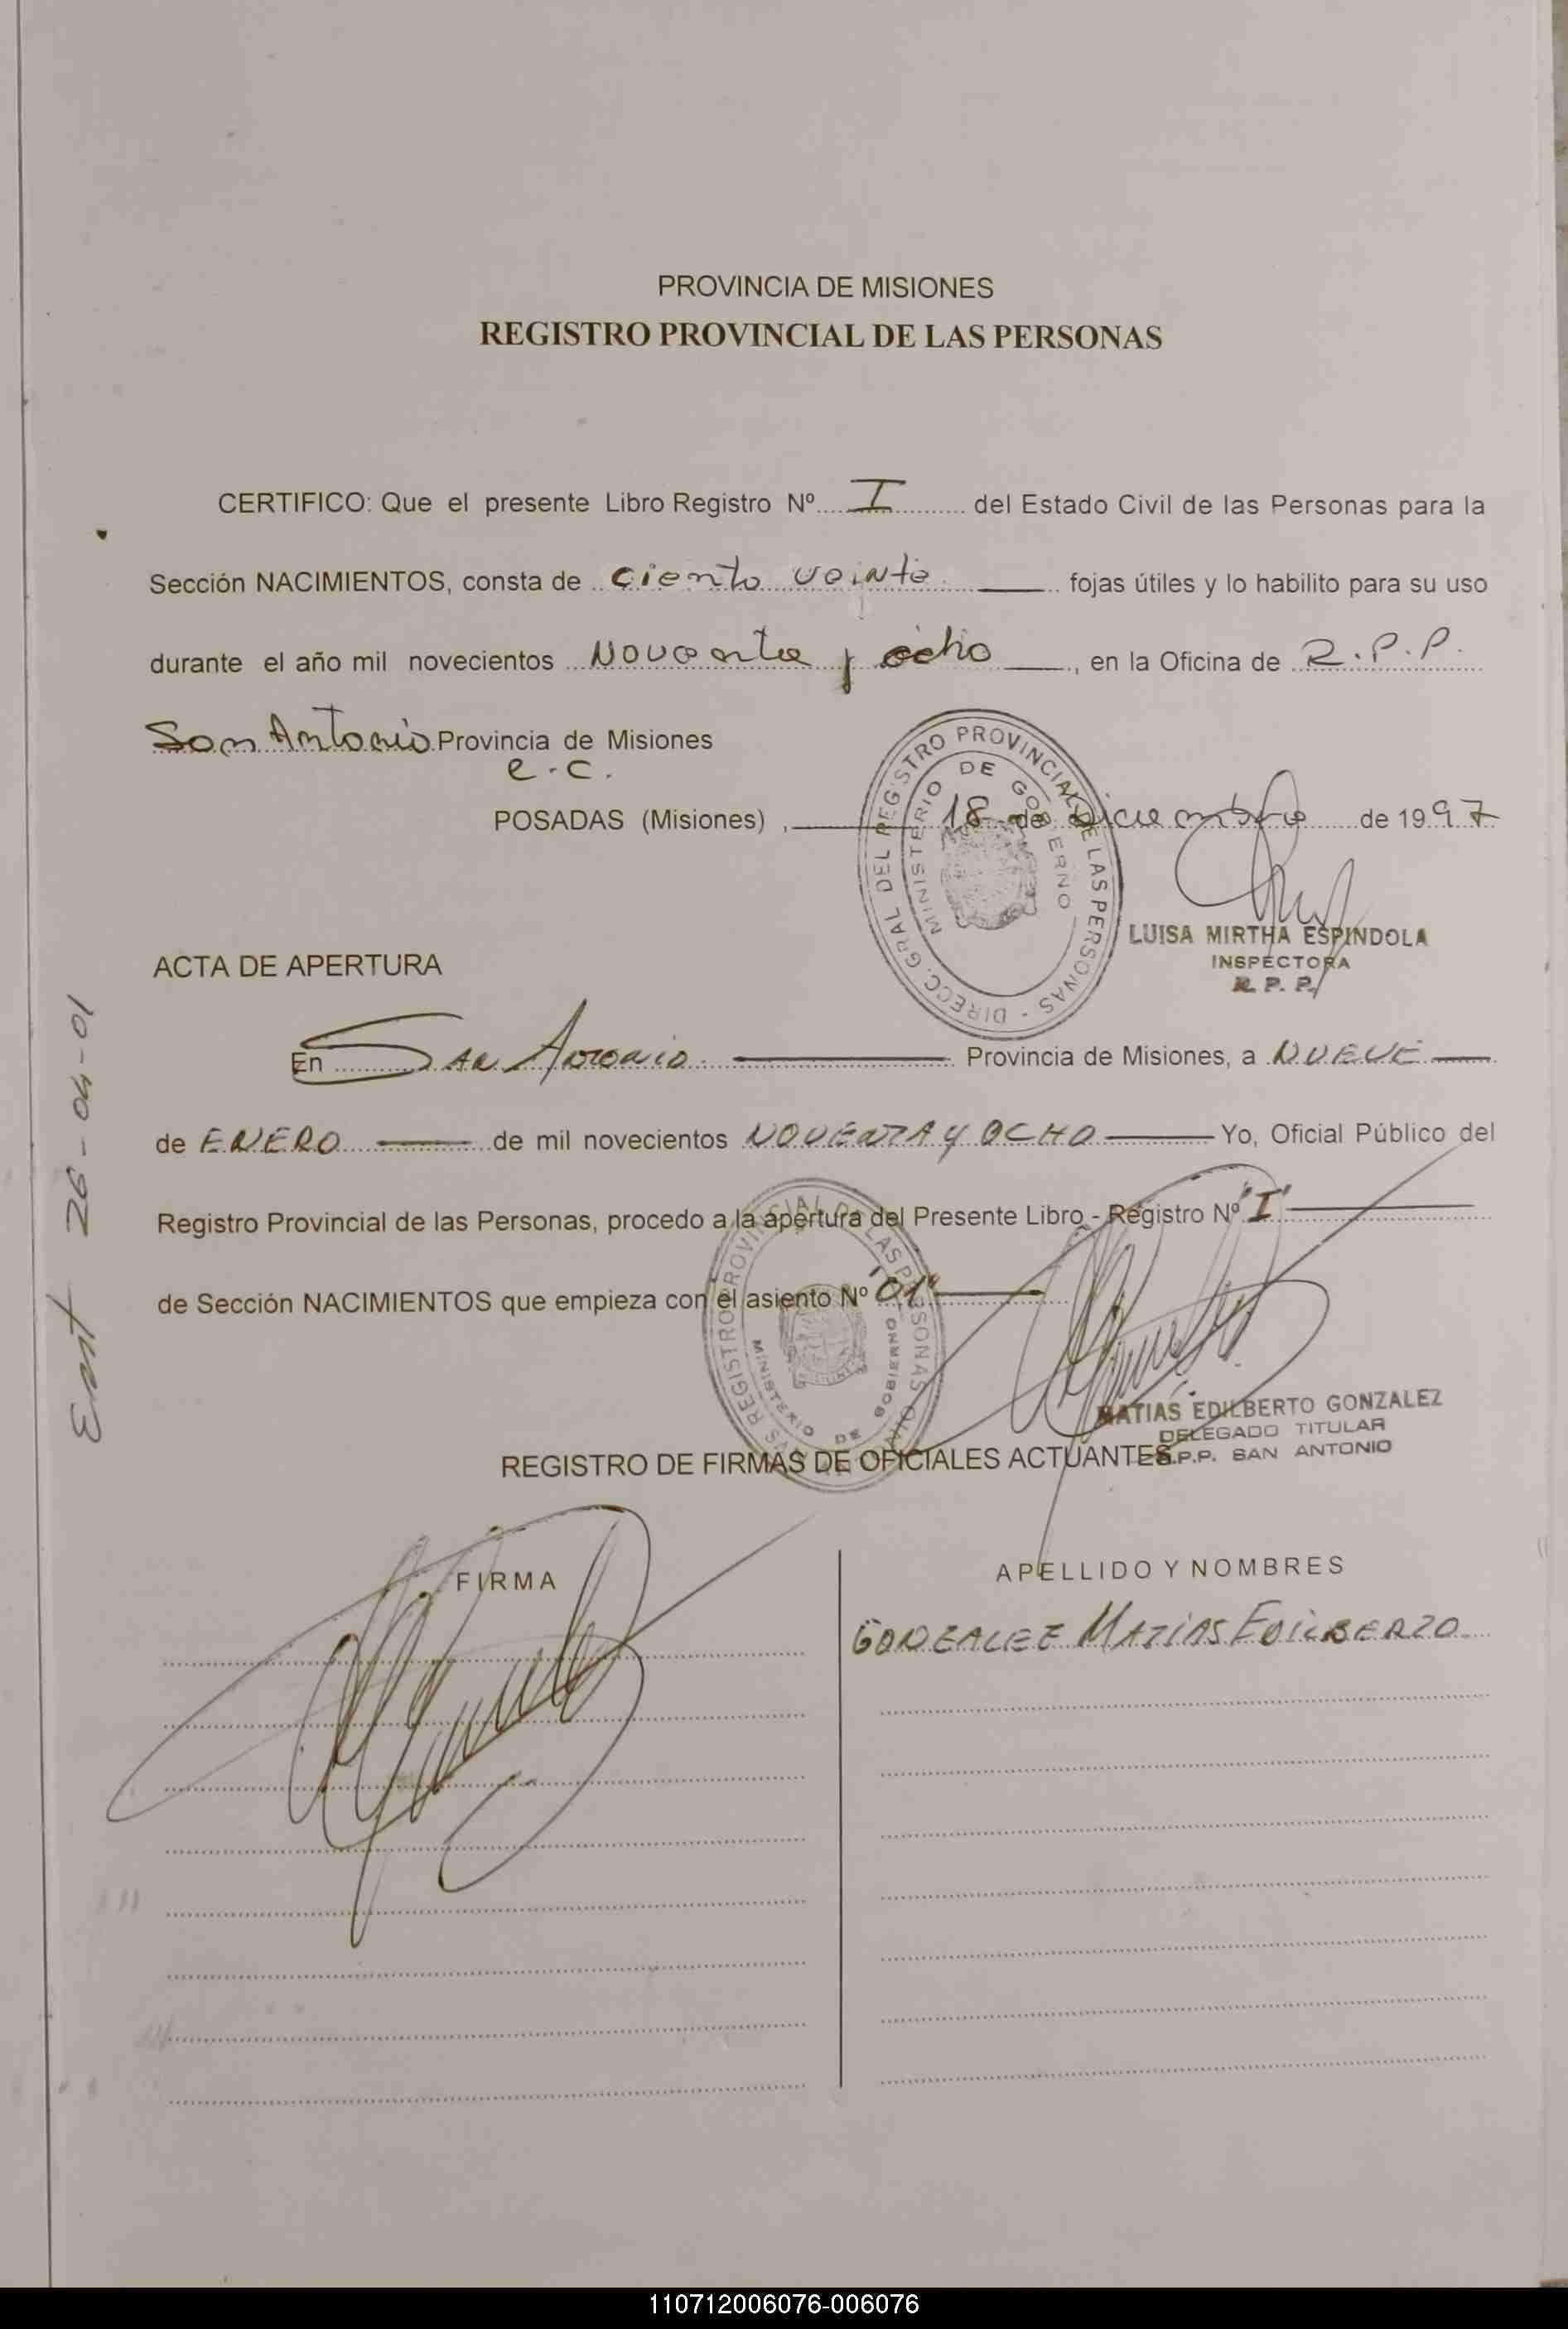 PROVINCIA DE MISIONES
REGISTRO PROVINCIAL DE LAS PERSONAS
CERTIFICO: Que el presente Libro Registro Nº I del Estado Civil de las Personas para la
Sección NACIMIENTOS, consta de ciento veinte fojas útiles y lo habilito para su uso
durante el año mil novecientos Noventa y ocho, en la Oficina de R.P.P.
San Antonio Provincia de Misiones
e.c.
POSADAS (Misiones), 18 de diciembre de 1997
DIRECC. GRAL DEL REGISTRO PROVINCIAL DE LAS PERSONAS
MINISTERIO DE GOBIERNO
LUISA MIRTHA ESPINDOLA
INSPECTORA
R. P. P.
ACTA DE APERTURA
En San Antonio Provincia de Misiones, a NUEVE
de ENERO de mil novecientos NOVENTA Y OCHO Yo, Oficial Público del
Registro Provincial de las Personas, procedo a la apertura del Presente Libro - Registro Nº "I"
de Sección NACIMIENTOS que empieza con el asiento Nº "01"
REGISTRO PROVINCIAL DE LAS PERSONAS
MINISTERIO DE GOBIERNO
MATIAS EDILBERTO GONZALEZ
DELEGADO TITULAR
R.P.P. SAN ANTONIO
REGISTRO DE FIRMAS DE OFICIALES ACTUANTES
FIRMA
APELLIDO Y NOMBRES
GONZALEZ MATIAS EDILBERTO
26-04-01
110712006076-006076